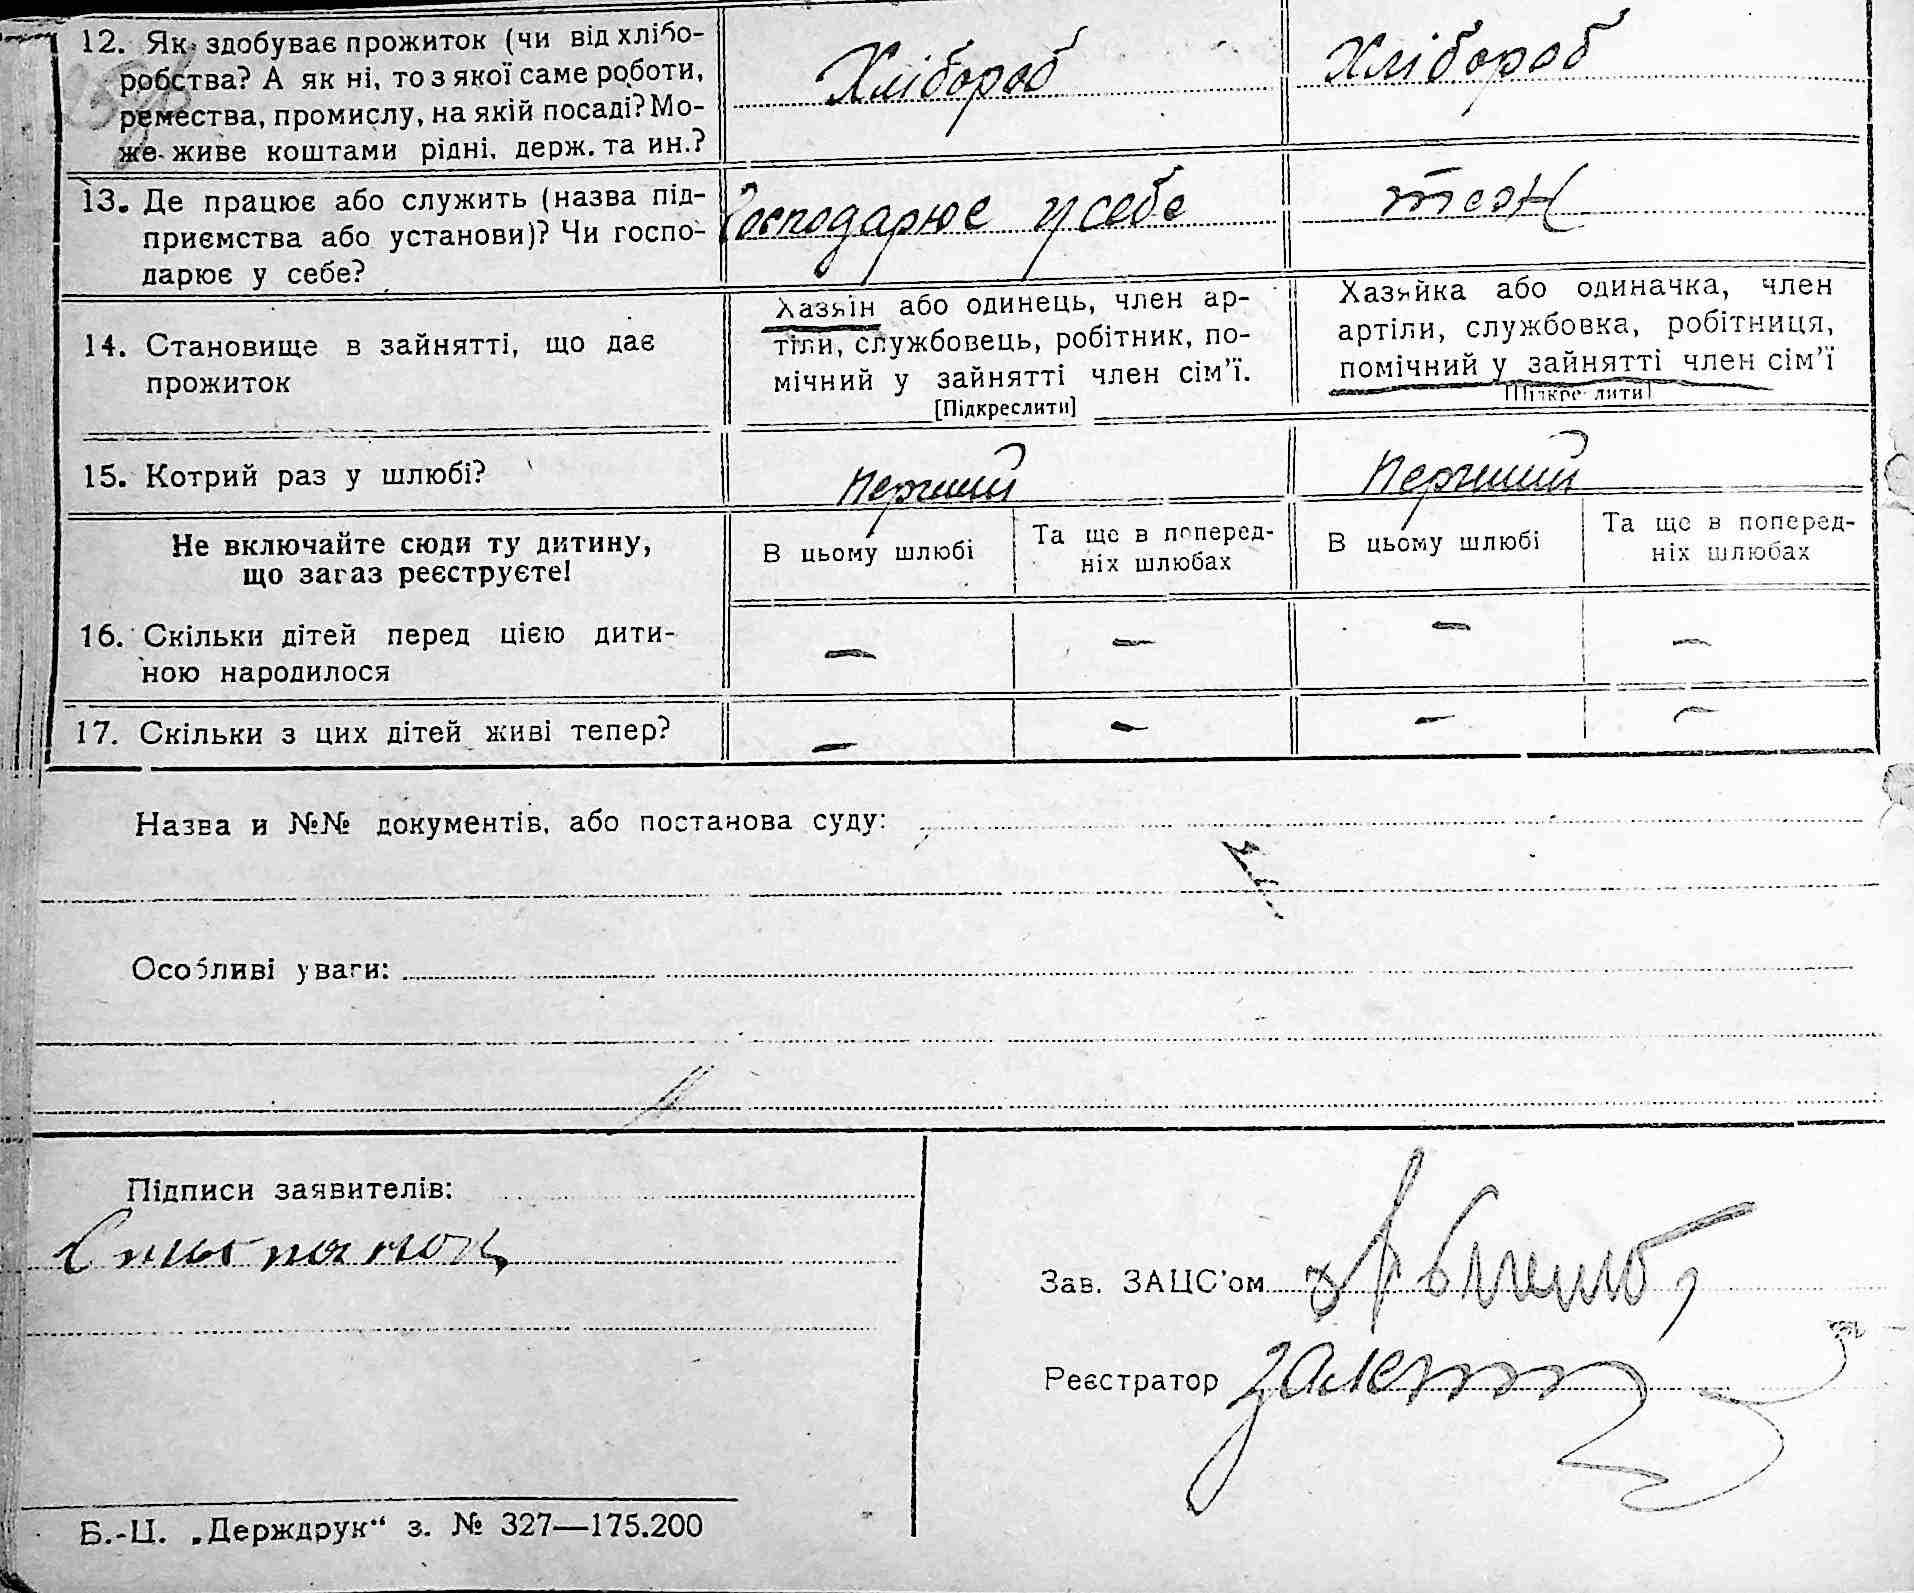 12. Як здобуває прожиток (чи від хлібо-
робства? А як ні, то з якої саме роботи,
ремества, промислу, на якій посаді? Мо-
же живе коштами рідні, держ. та ин.?
Хлібороб
Хлібороб
13. Де працює або служить (назва під-
приємства або установи)? Чи госпо-
дарює у себе?
Господарює у себе
теж
14. Становище в зайнятті, що дає
прожиток
Хазяїн або одинець, член ар-
тіли, службовець, робітник, по-
мічний у зайнятті член сім'ї.
[Підкреслити]
Хазяйка або одиначка, член
артіли, службовка, робітниця,
помічний у зайнятті член сім'ї
[Підкреслити]
15. Котрий раз у шлюбі?
перший
перший
Не включайте сюди ту дитину,
що загаз реєструєте!
В цьому шлюбі
Та ще в поперед-
ніх шлюбах
В цьому шлюбі
Та ще в поперед-
ніх шлюбах
16. Скільки дітей перед цією дити-
ною народилося
— — — —
17. Скільки з цих дітей живі тепер?
— — — —
Назва и №№ документів, або постанова суду:
Особливі уваги:
Підписи заявителів:
Зав. ЗАЦС'ом
Реєстратор
Б.-Ц. „Держдрук“ з. № 327—175.200